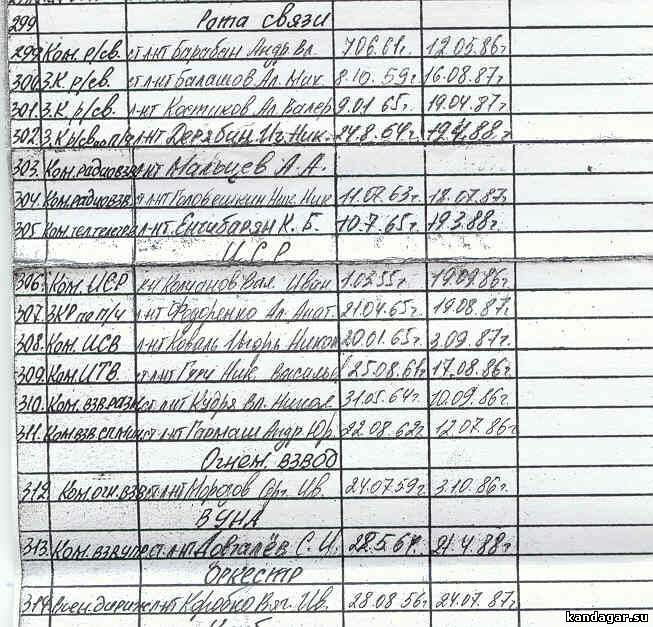 299 Рота связи
299 Ком. р/св. ст л-нт Барабан Андр Вл. 7.06.61г. 12.05.86г
300 З.К. р/св. ст л-нт Балашов Ал. Мих. 8.10.59г. 16.08.87г.
301. З.К. р/св. л-нт Костиков Ал. Валер 9.01.65г. 19.04.87г.
302. л-нт Дерябин Иг. Ник. 24.8.64г. 88г.
303. Ком. радиовзв л-нт Мальцев А.А.
304. Ком. радиовзв. ст л-нт Головешкин Ник. Ник 11.07.63г. 18.07.87г.
305 л-нт. Енгибарян К.Б. 10.7.65г. 19.3.88г.
И.С.Р
306. Ком. ИСР Вал. Иван 1.03.55г. 19.09.86г
307. ЗКР по п/ч л-нт Федоренко Ал. Анат. 21.04.65г. 19.08.87г
308. Ком. ИСВ л-нт Коваль Игорь Никол 20.01.65г. 3.09.87г.
309. Ком. ИТВ. ст л-нт Ник. Василь 25.08.61г 17.08.86г.
310. Ком. взв. разм ст л-нт Кудря Вл. Никол. 31.05.64г. 10.09.86г.
311. Ком. взв. ст л-нт Гармаш Андр Юр. 22.08.62г 12.07.86г
Огнем. взвод
312. Ком. огн. взв ст л-нт Морозов Серг. Ив. 24.07.59г. 3.10.86г.
ВУНА
313. Ком. взв. упр ст л-нт Довгалёв С.И. 22.5.61г. 21.4.88г.
Оркестр
314 Воен. дириж л-нт Коробко Вяч. Ив. 28.08.56г. 24.07.87г
kandagar.su